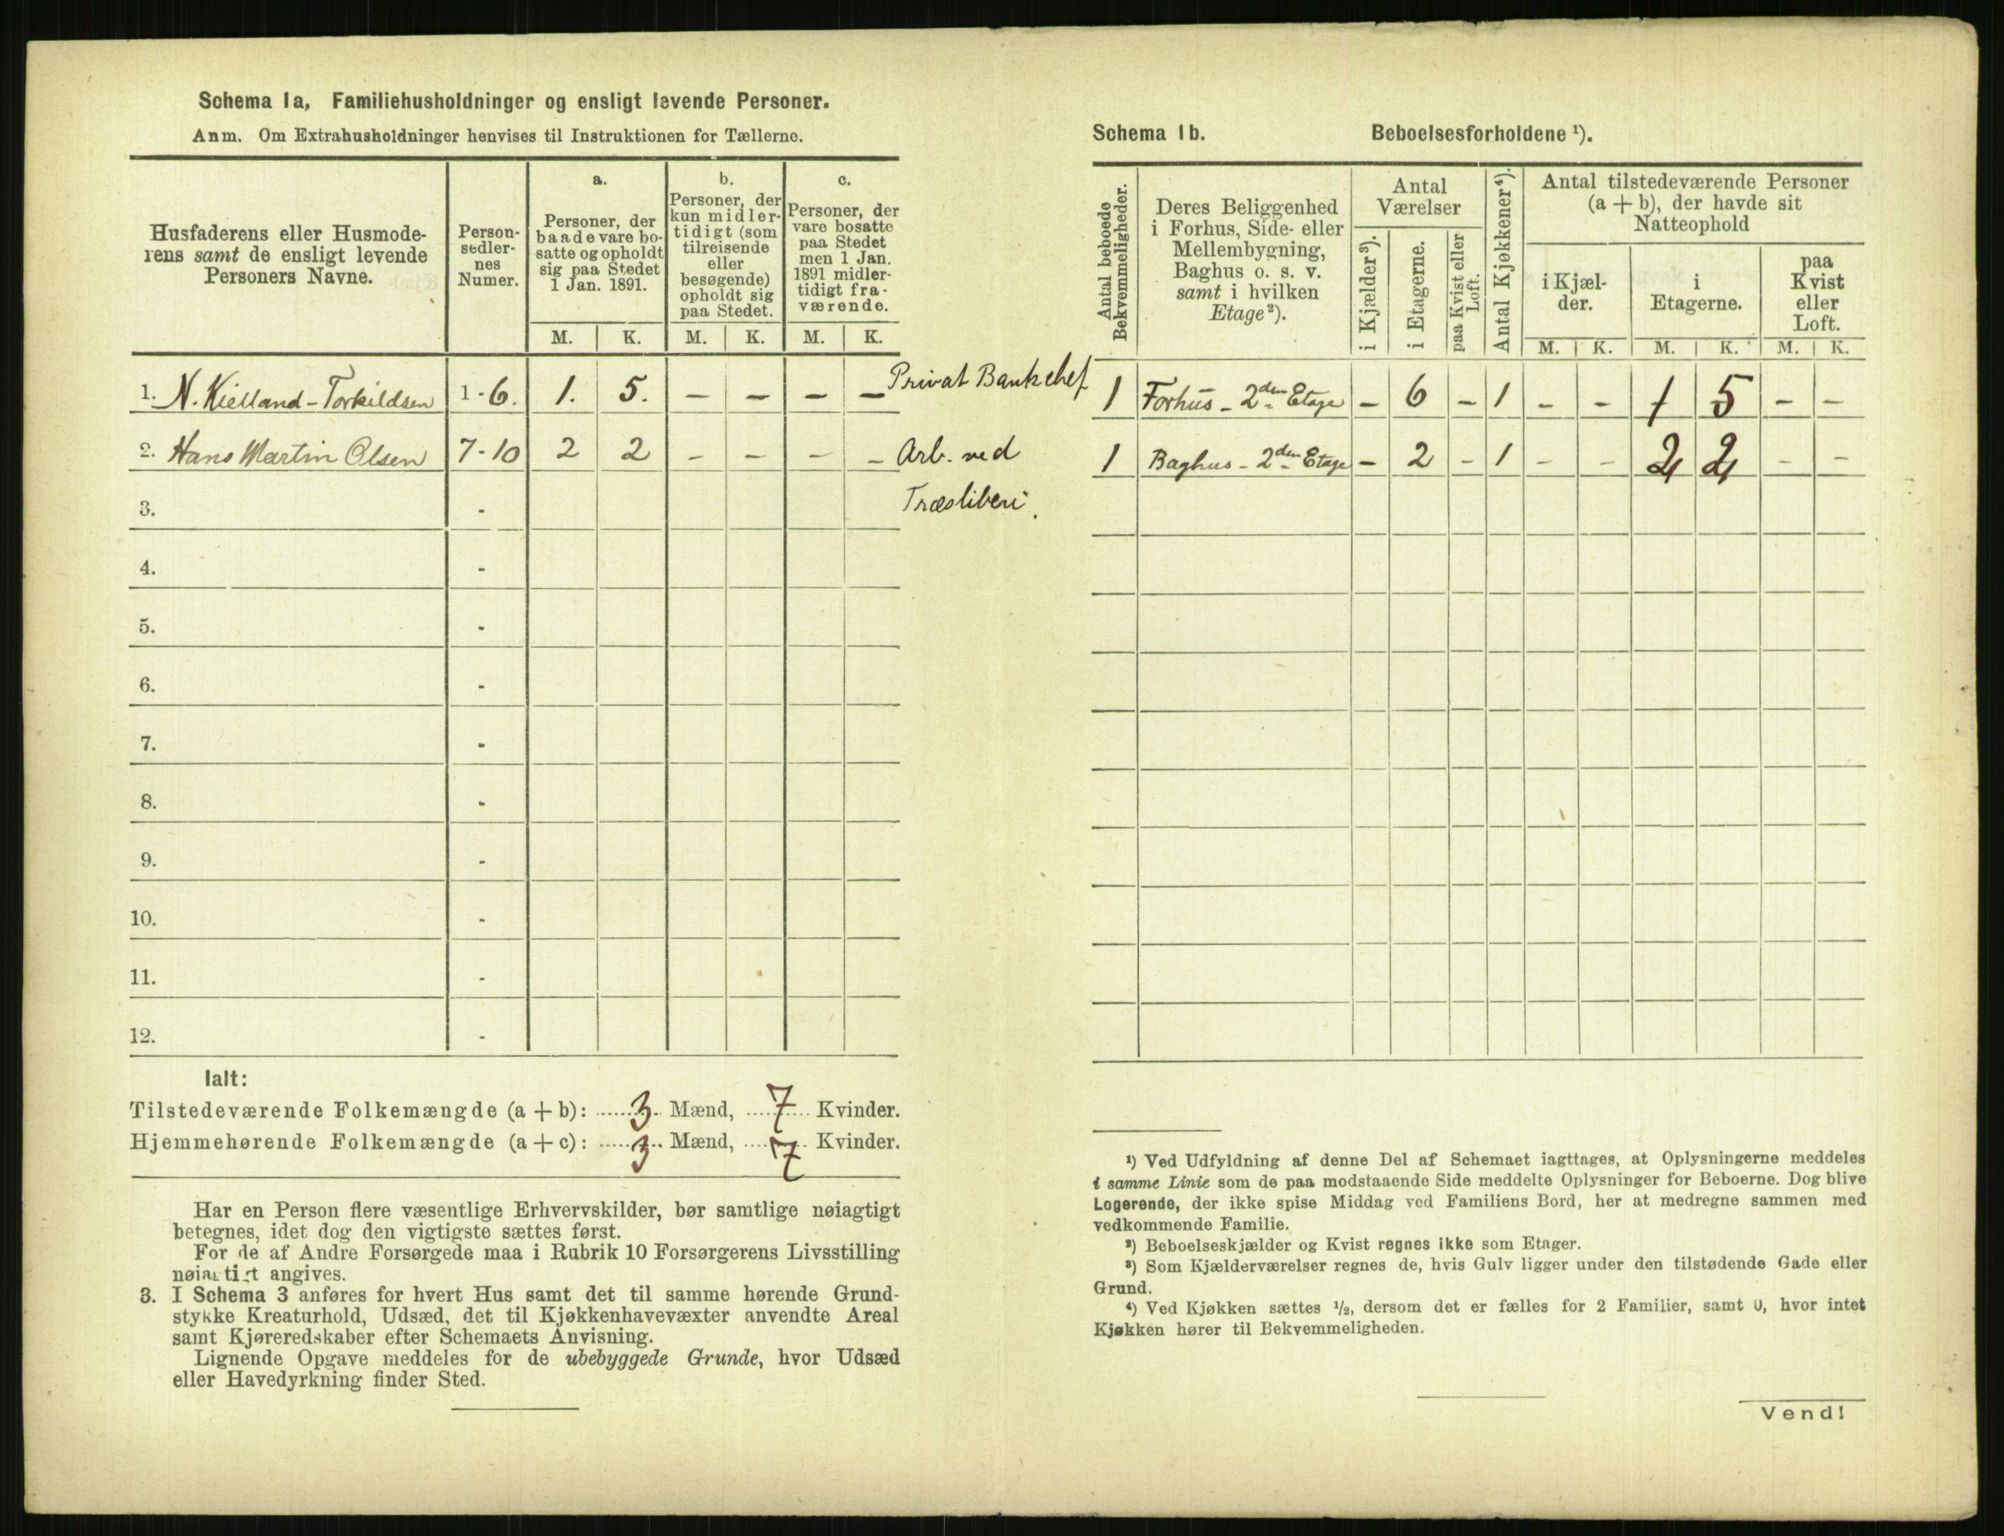 Schema 1a, Familiehusholdninger og ensligt levende Personer.
Anm. Om Extrahusholdninger henvises til Instruktionen for Tællerne.
Husfaderens eller Husmode-
rens samt de ensligt levende
Personers Navne.
Person-
sedler-
nes
Numer.
a.
Personer, der
baade vare bo-
satte og opholdt
sig paa Stedet
1 Jan. 1891.
b.
Personer, der
kun midler-
tidigt (som
tilreisende
eller
besøgende)
opholdt sig
paa Stedet.
c.
Personer, der
vare bosatte
paa Stedet
men 1 Jan.
1891 midler-
tidigt fra-
værende.
M. K. M. K. M. K.
1. N. Kielland-Torkildsen 1-6. 1. 5. - - - - Privat Bankchef
2. Hans Martin Olsen 7-10 2 2 - - - - Arb. ved
3. - Træsliberi.
4. -
5. -
6. -
7. -
8. -
9. -
10. -
11. -
12. -
Ialt:
Tilstedeværende Folkemængde (a+b): 3 Mænd, 7 Kvinder.
Hjemmehørende Folkemængde (a+c): 3 Mænd, 7 Kvinder.
Har en Person flere væsentlige Erhvervskilder, bør samtlige nøiagtigt
betegnes, idet dog den vigtigste sættes først.
For de af Andre Forsørgede maa i Rubrik 10 Forsørgerens Livsstilling
nøiagtigt angives.
3. I Schema 3 anføres for hvert Hus samt det til samme hørende Grund-
stykke Kreaturhold, Udsæd, det til Kjøkkenhavevæxter anvendte Areal
samt Kjøreredskaber efter Schemaets Anvisning.
Lignende Opgave meddeles for de ubebyggede Grunde, hvor Udsæd
eller Havedyrkning finder Sted.
Schema 1b. Beboelsesforholdene ¹).
Antal beboede
Bekvemmeligheder.
Deres Beliggenhed
i Forhus, Side- eller
Mellembygning,
Baghus o. s. v.
samt i hvilken
Etage²).
Antal
Værelser
i Kjælder³).
i Etagerne.
paa Kvist eller
Loft.
Antal Kjøkkener⁴).
Antal tilstedeværende Personer
(a + b), der havde sit
Natteophold
i Kjæl-
der.
i
Etagerne.
paa
Kvist
eller
Loft.
M. K. M. K. M. K.
1 Forhus - 2den Etage - 6 - 1 - - 1 5 - -
1 Baghus - 2den Etage - 2 - 1 - - 2 2 - -
¹) Ved Udfyldning af denne Del af Schemaet iagttages, at Oplysningerne meddeles
i samme Linie som de paa modstaaende Side meddelte Oplysninger for Beboerne. Dog blive
Logerende, der ikke spise Middag ved Familiens Bord, her at medregne sammen med
vedkommende Familie.
²) Beboelseskjælder og Kvist regnes ikke som Etager.
³) Som Kjælderværelser regnes de, hvis Gulv ligger under den tilstødende Gade eller
Grund.
⁴) Ved Kjøkken sættes ½, dersom det er fælles for 2 Familier, samt 0, hvor intet
Kjøkken hører til Bekvemmeligheden.
Vend!